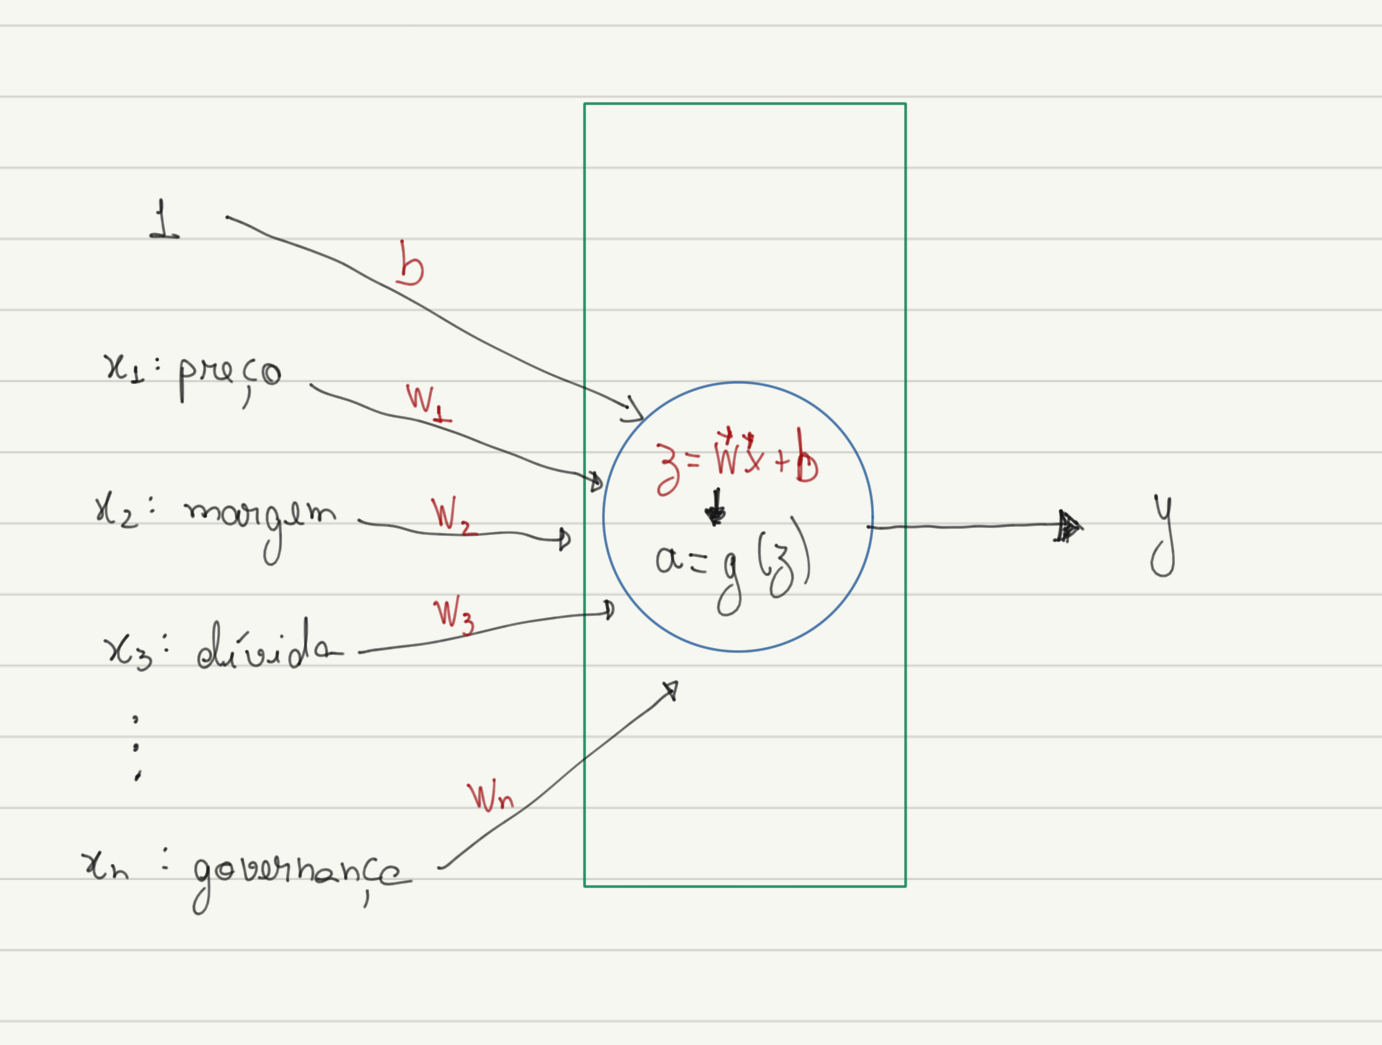 1
b
x₁: preço
W₁
x₂: margem
W₂
x₃: dívida
W₃
⋮
xₙ: governança
Wₙ
z = w⃗x⃗ + b
a = g(z)
y